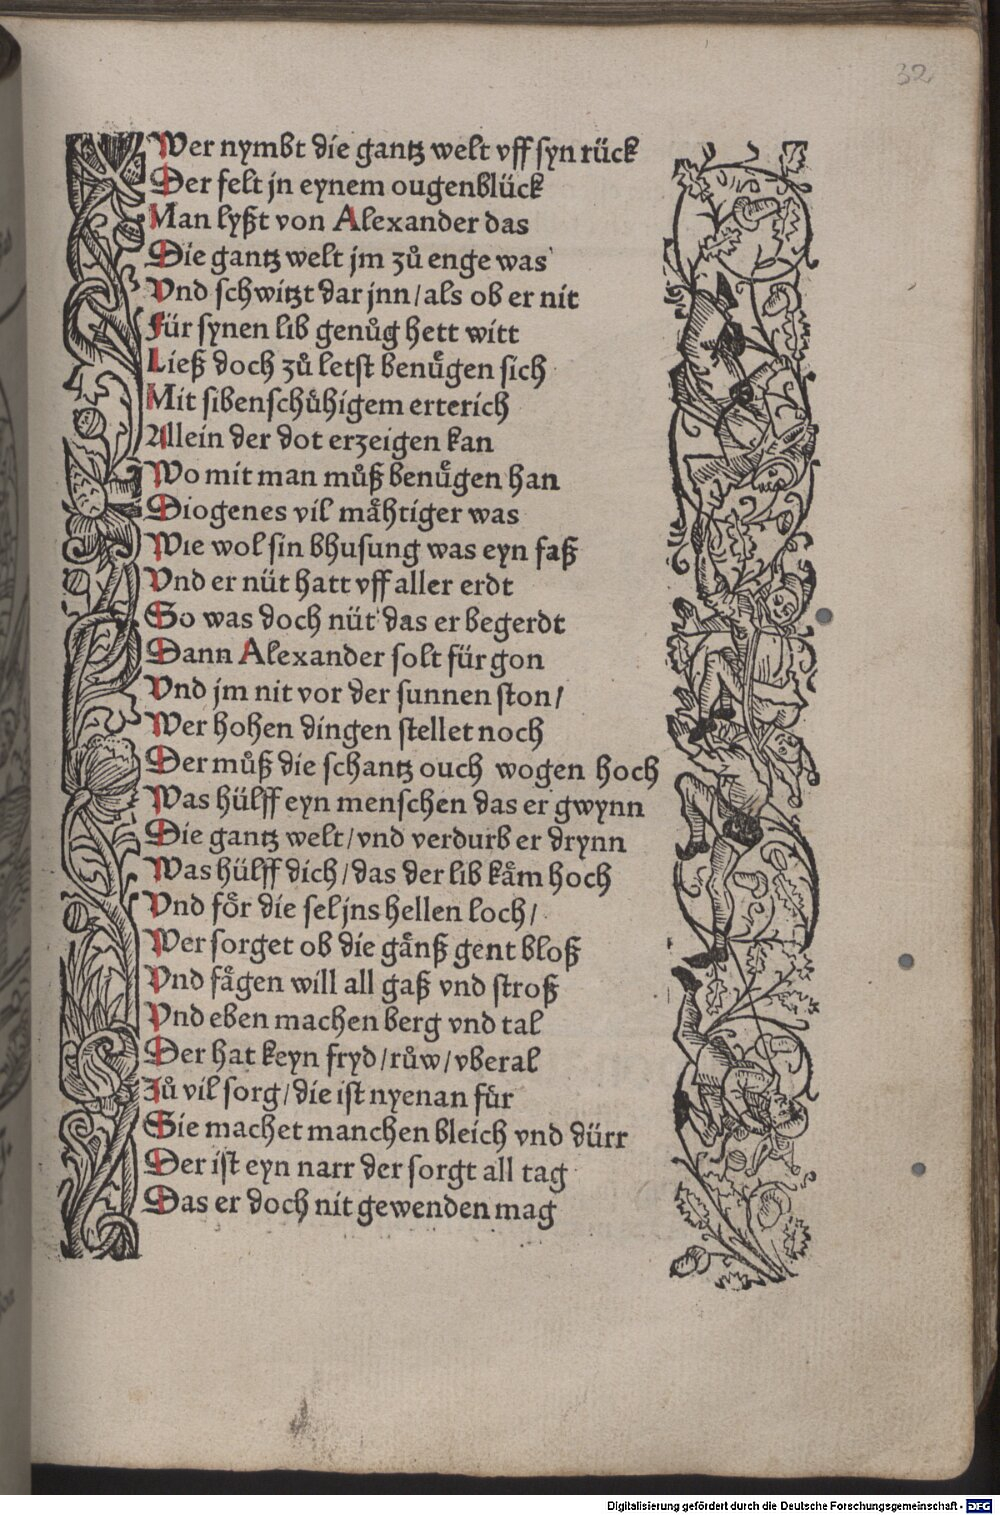 32
Wer nymbt die gantz welt vff syn rück
Der felt jn eynem ougenblück
Man lyßt von Alexander das
Die gantz welt jm zů enge was
Vnd schwitzt dar jnn/als ob er nit
Für synen lib genůg hett witt
Ließ doch zů letst benuͤgen sich
Mit sibenschůhigem erterich
Allein der dot erzeigen kan
Wo mit man můß benuͤgen han
Diogenes vil maͤhtiger was
Wie wol sin bhusung was eyn faß
Vnd er nüt hatt vff aller erdt
So was doch nüt das er begerdt
Dann Alexander solt für gon
Vnd jm nit vor der sunnen ston/
Wer hohen dingen stellet noch
Der můß die schantz ouch wogen hoch
Was hülff eyn menschen das er gwynn
Die gantz welt/vnd verdurb er drynn
Was hülff dich/das der lib kaͤm hoch
Vnd foͤr die sel jns hellen loch/
Wer sorget ob die gaͤnß gent bloß
Vnd faͤgen will all gaß vnd stroß
Vnd eben machen berg vnd tal
Der hat keyn fryd/růw/vberal
Zů vil sorg/die ist nyenan fuͤr
Sie machet manchen bleich vnd dürr
Der ist eyn narr der sorgt all tag
Das er doch nit gewenden mag
Digitalisierung gefördert durch die Deutsche Forschungsgemeinschaft - DFG